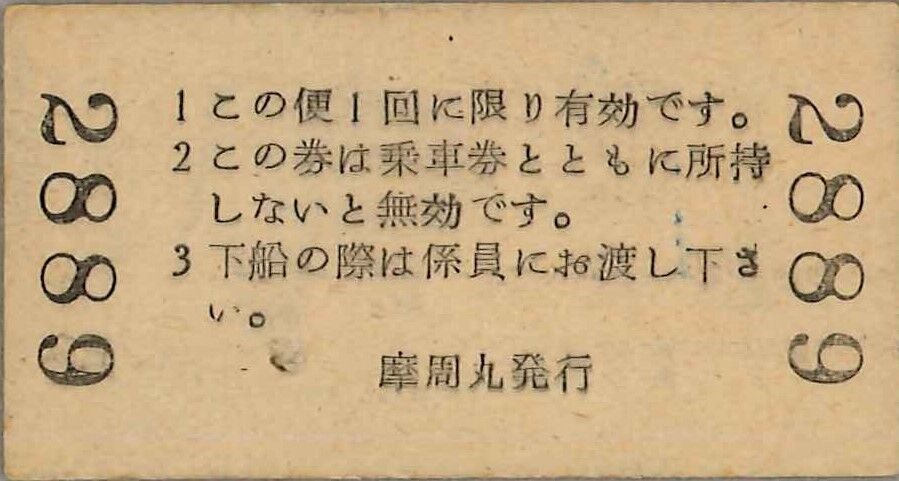 1 この便1回に限り有効です。
2 この券は乗車券とともに所持
しないと無効です。
3 下船の際は係員にお渡し下さ
い。
摩周丸発行
2889
2889